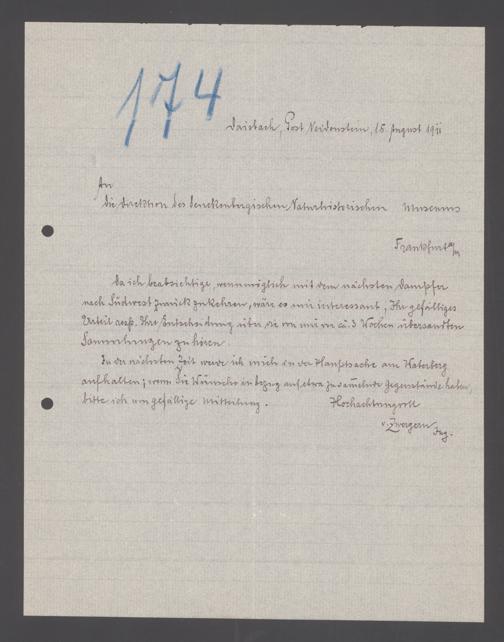 174
Daisbach, Post Neidenstein, 15. August 1911
An
die Direktion des Senckenbergischen Naturhistorischen Museums
Frankfurt a/M
Da ich beabsichtige, wenn möglich mit dem nächsten Dampfer
nach Südwest zurückzukehren, wäre es mir interessant, Ihr gefälliges
Urteil resp. Ihre Entscheidung über die von mir vor ca. 3 Wochen übersandten
Sammlungen zu hören.
In der nächsten Zeit werde ich mich in der Hauptsache am Waterberg
aufhalten; wenn Sie Wünsche in bezug auf etwa zu sammelnde Gegenstände haben,
bitte ich um gefällige Mitteilung. Hochachtungsvoll
v. Zwergern
Ing.